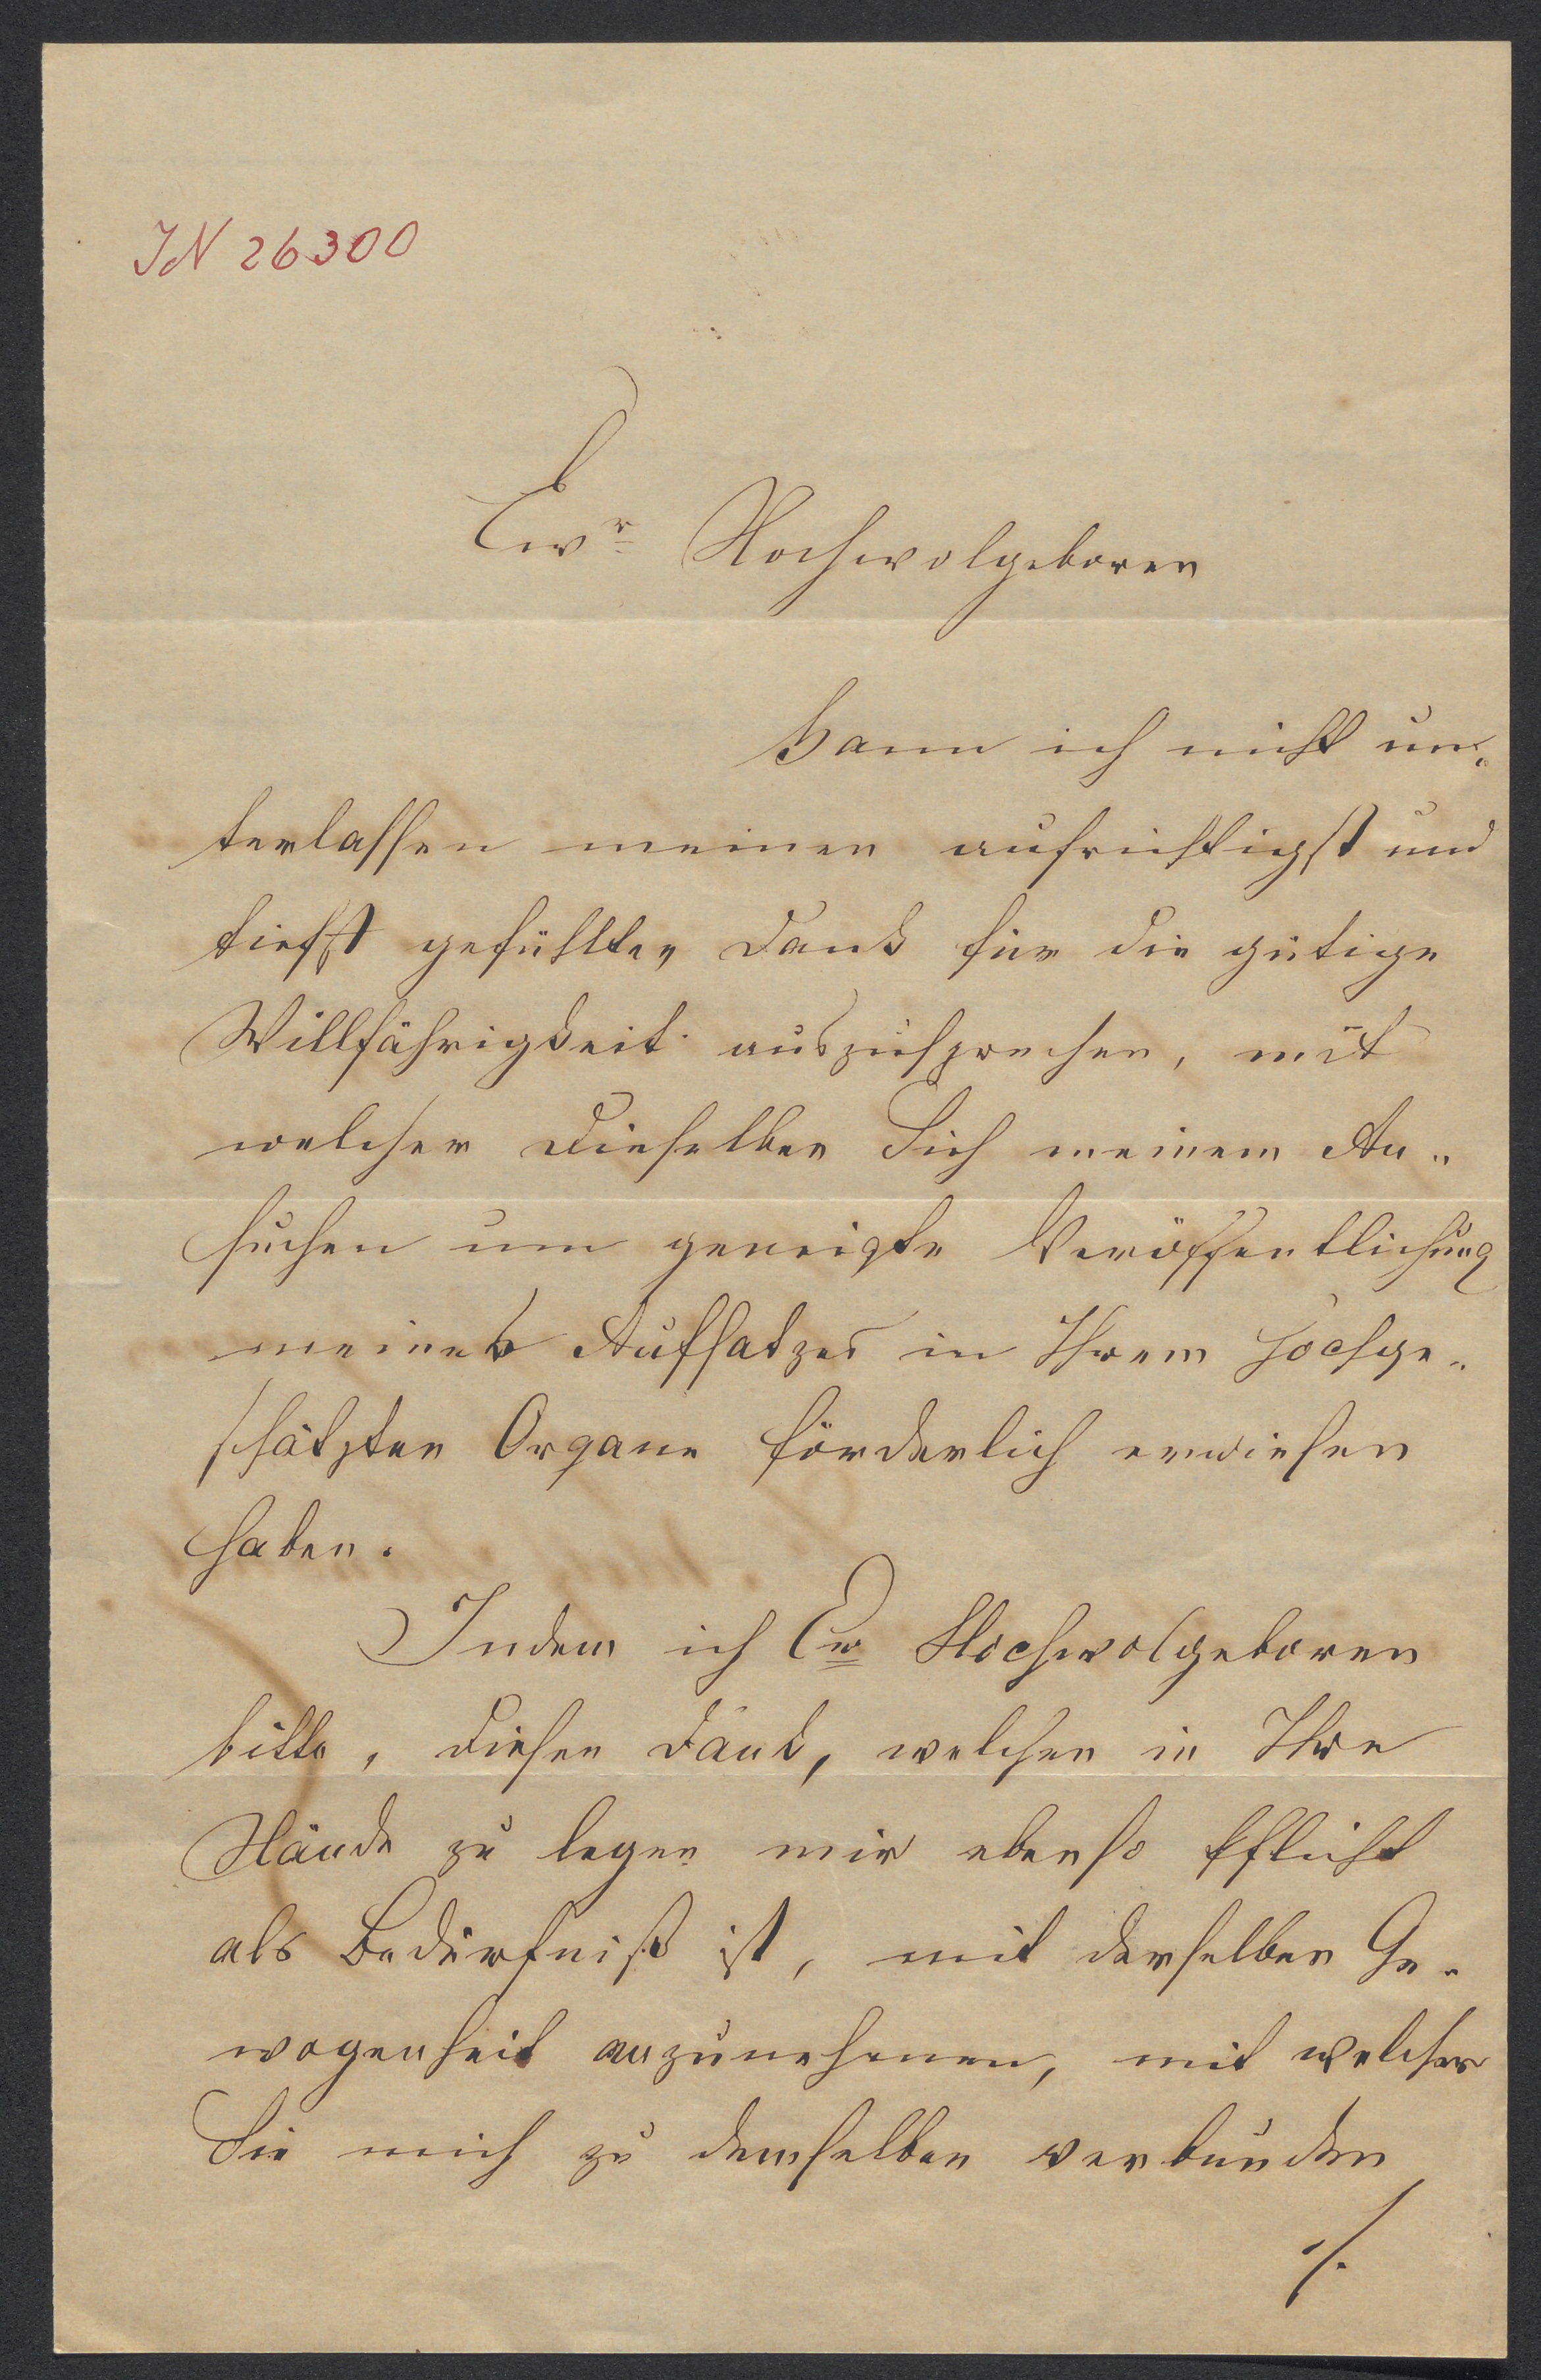 IN 26300
Ewr Hochwolgeboren
kann ich nicht un„
terlassen meinen aufrichtigst und
tiefst gefühlten Dank für die gütige
Willfährigkeit auszusprechen, mit
welcher Dieselben Sich meinem An„
suchen um geneigte Veröffentlichung
meines Aufsatzes in Ihrem hochge„
schätzten Organe förderlich erwiesen
haben.
Indem ich Ew Hochwolgeboren
bitte, diesen Dank, welchen in Ihre
Hände zu legen mir ebenso Pflicht
als Bedürfniß ist, mit derselben Ge„
wogenheit anzunehmen, mit welcher
Sie mich zu demselben verbunden
./.